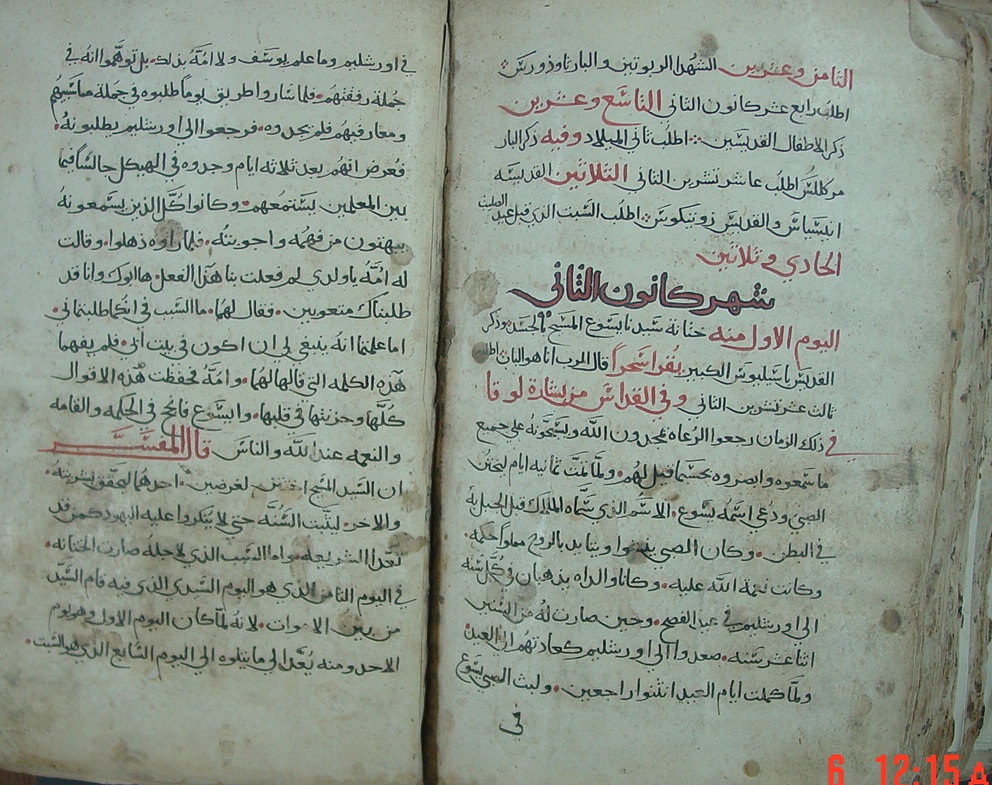 الثامن وعشرين الشهدا الربوتين والبار تاوذورس
اطلب رابع عشر كانون الثاني التاسع وعشرين
ذكر الاطفال القديسين اطلب ثاني الميلاد وفيه ذكر البار
مركللس اطلب عاشر تشرين الثاني الثلاثين القديسه
انيسياس والقديس زوتيكوس اطلب السبت الذي قبل عيد الصليب
الحادي وثلاثين
شهر كانون الثاني
اليوم الاول منه ختانة سيدنا يسوع المسيح بالجسد وذكر
القديس باسيليوس الكبير يقرا سحرا قال الرب انا هو الباب اطلبه
ثالث عشر تشرين الثاني وفي القداس من بشارة لوقا
في ذلك الزمان رجعوا الرعاه يمجدون الله ويسبحونه على جميع
ما سمعوه وابصروه بحسبما قيل لهم ولما تمت ثمانيه ايام ليختن
الصبي ودعي اسمه يسوع الاسم الذي سماه الملاك قبل الحبل به
في البطن وكان الصبي ينشوا ويتايد بالروح مملوا حكمه
وكانت نعمة الله عليه وكانا والداه يذهبان في كل سنه
الى اورشليم في عيد الفصح وحين صارت له من السنين
اثنا عشر سنه صعدوا الى اورشليم كعادتهم الى العيد
ولما كملت ايام العيد انثنوا راجعين ولبث الصبي يسوع
في
في اورشليم وما علم يوسف ولا امه بذلك بل توهموا انه في
جملة رفقتهم فلما ساروا طريق يوما طلبوه في جملة مناسبيهم
ومعارفيهم فلم يجدوه فرجعوا الى اورشليم يطلبونه
فعرض انهم بعد ثلاثه ايام وجدوه في الهيكل جالسا فيما
بين المعلمين يستمعهم وكانوا كل الذين يسمعونه
يبهتون من فهمه واجوبته فلما راوه ذهلوا وقالت
له امه يا ولدي لم فعلت بنا هذا الفعل ها ابوك وانا قد
طلبناك متعوبين فقال لهما ما السبب في انكما طلبتماني
اما علمتما انه ينبغي لي ان اكون في بيت ابي فلم يفهما
هذه الكلمه التي قالها لهما وامه فحفظت هذه الاقوال
كلها وخزنتها في قلبها وايسوع فانجح في الحكمه والقامه
والنعمه عند الله والناس قال المفسر
ان السيد المسيح اختتن لغرضين احدهما ليحقق بشريته
والاخر ليثبت السنه حتى لا يتنكروا عليه اليهود كمن قد
تعدا الشريعه واما السبب الذي لاجله صارت الختانه
في اليوم الثامن الذي هو اليوم السيدي الذي فيه قام السيد
من بين الاموات لانه لما كان اليوم الاول وهو يوم
الاحد ومنه يعد الى ما يتلوه الى اليوم السابع الذي هو السبت
6 12:15